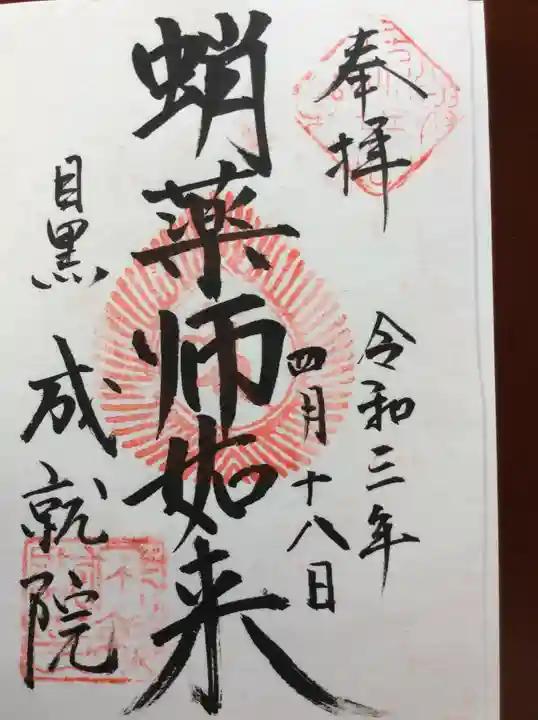 奉拝
令和三年
四月十八日
蛸薬师如来
目黒 成就院